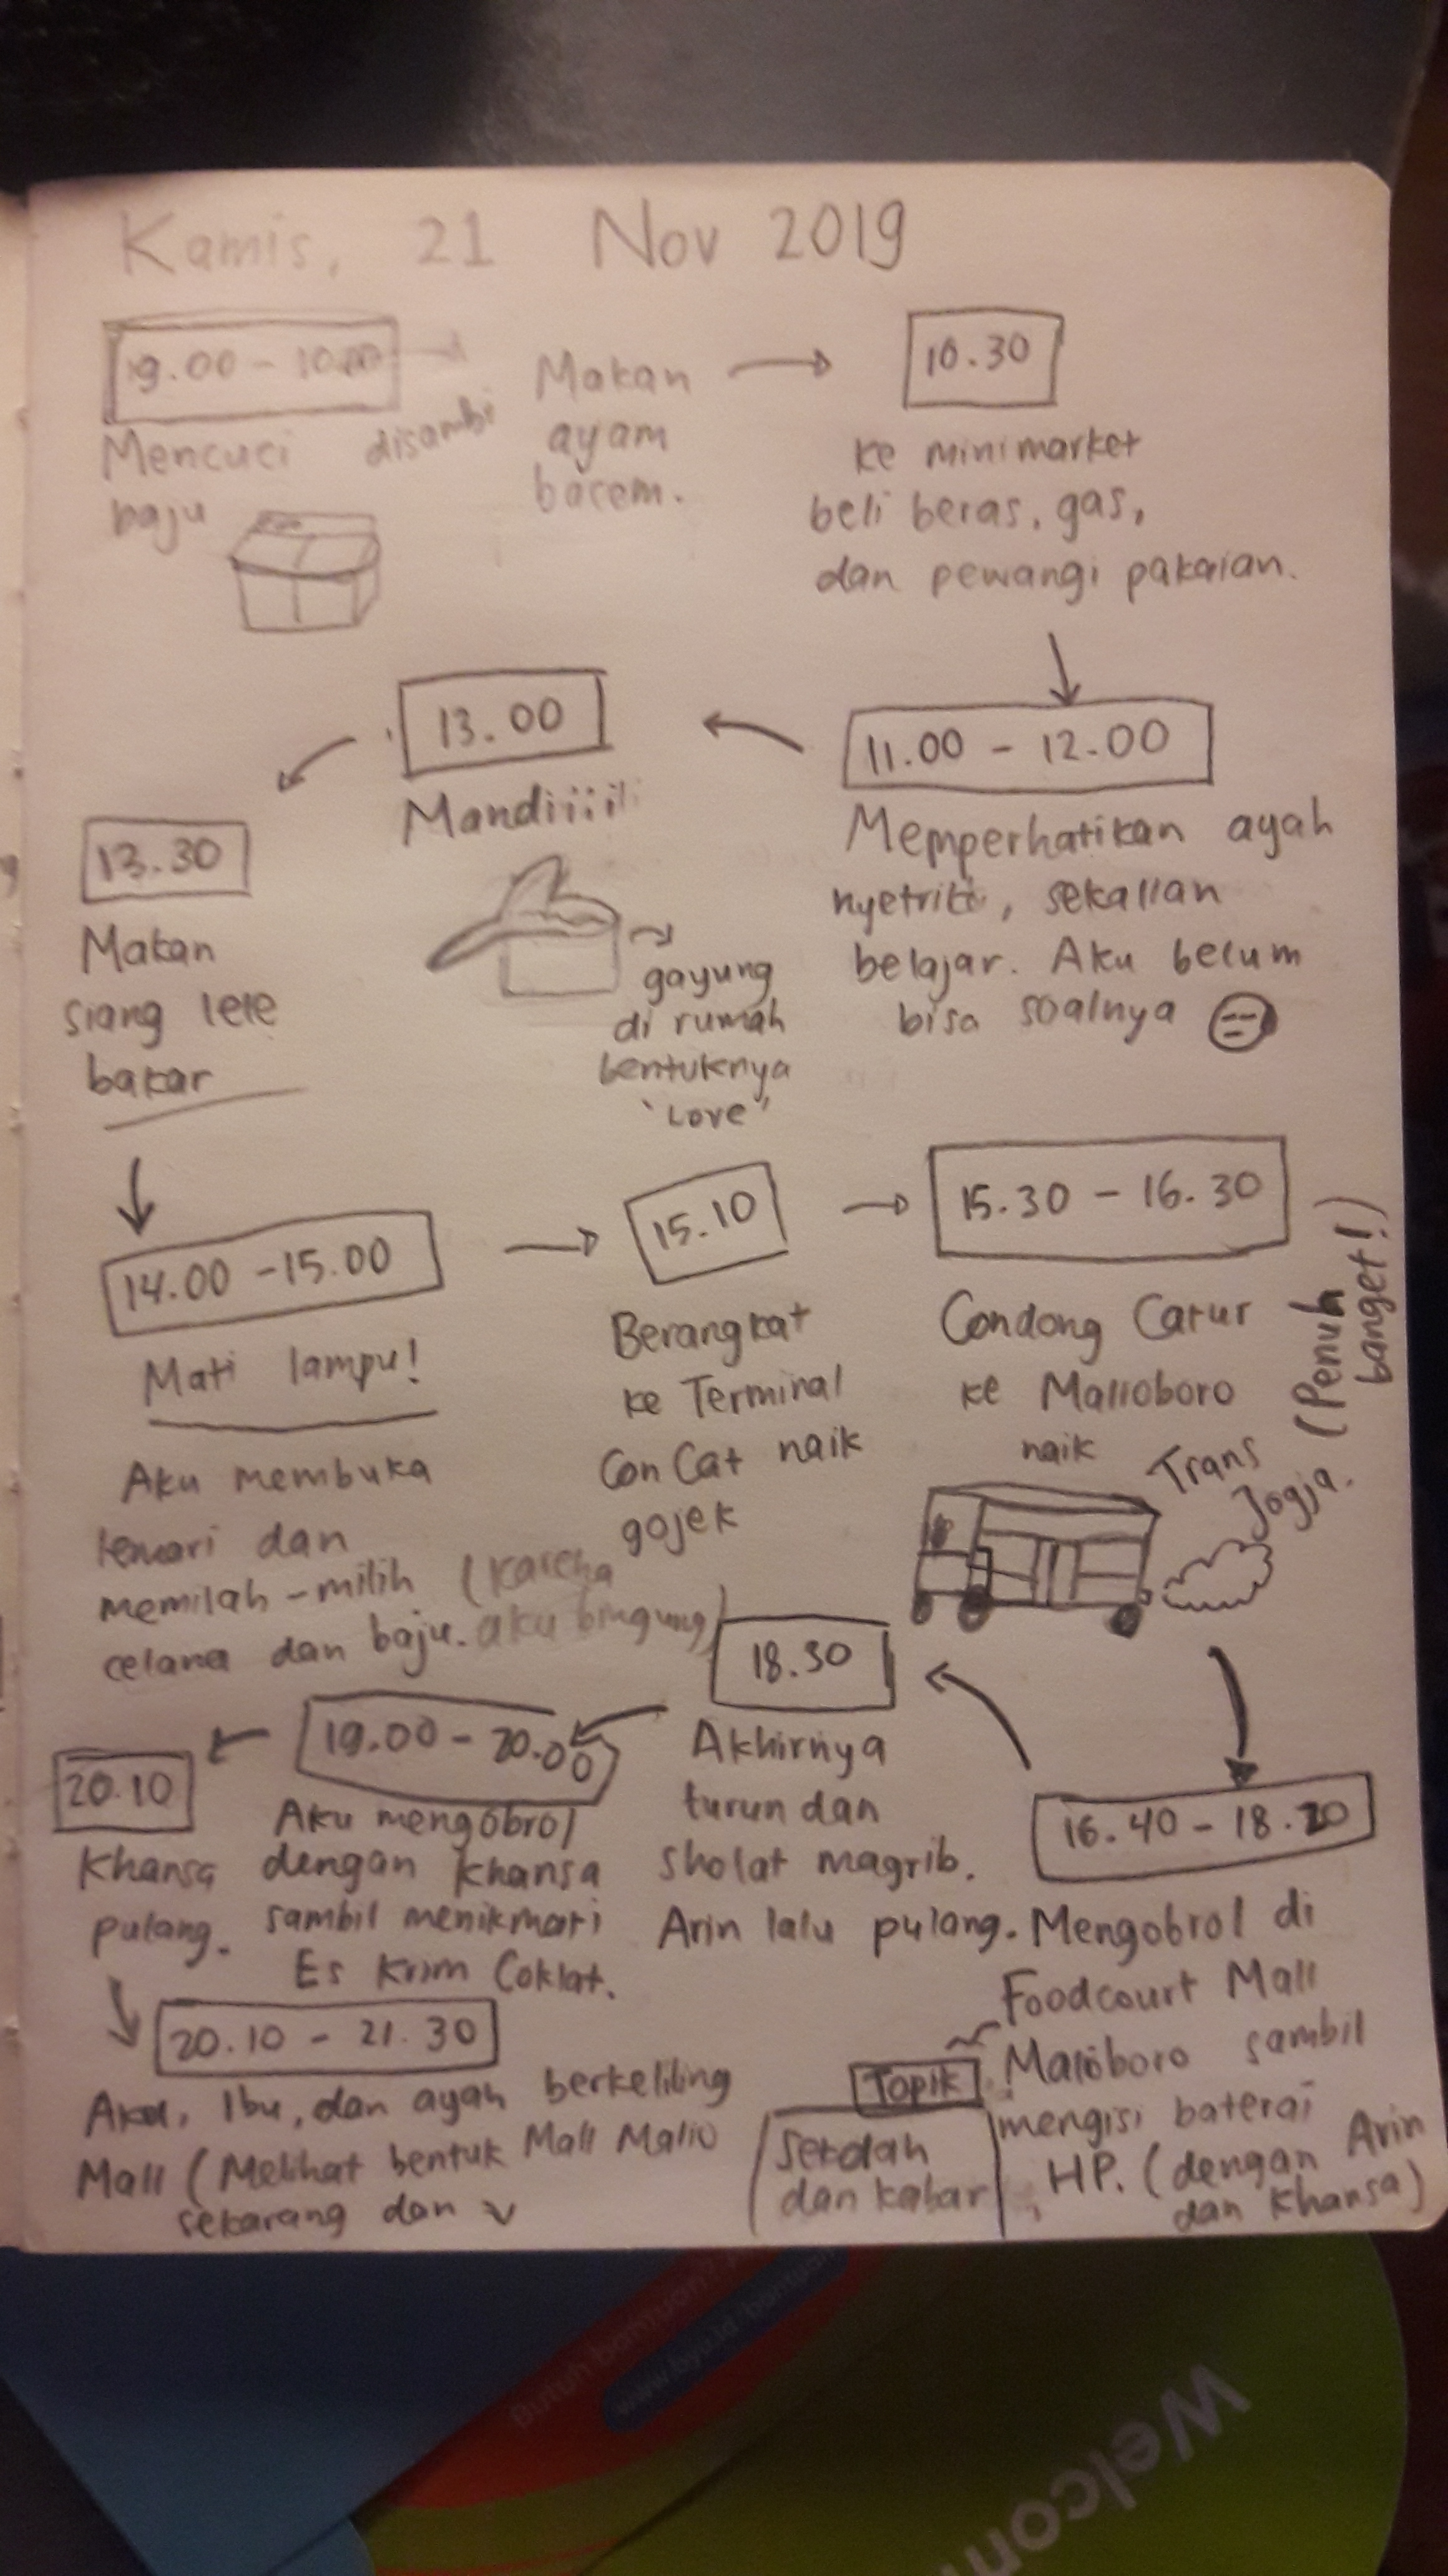 Kamis, 21 Nov 2019
9.00 - 10.00
Mencuci disambi
baju
Makan
ayam
bacem.
10.30
ke minimarket
beli beras, gas,
dan pewangi pakaian.
11.00 - 12.00
Memperhatikan ayah
nyetrika, sekalian
belajar. Aku belum
bisa soalnya
13.00
Mandiiiii
gayung
di rumah
bentuknya
"Love"
13.30
Makan
siang lele
bakar
14.00 - 15.00
Mati lampu!
Aku membuka
lemari dan
memilah-milih (karena
celana dan baju. aku bingung)
15.10
Berangkat
ke Terminal
ConCat naik
gojek
15.30 - 16.30
Condong Catur
ke Malioboro
naik Trans
Jogja.
(Penuh
banget!)
16.40 - 18.20
Mengobrol di
Foodcourt Mall
Malioboro sambil
mengisi baterai
HP. (dengan Arin
dan Khansa)
Topik
Sekolah
dan kabar
18.30
Akhirnya
turun dan
sholat magrib.
Arin lalu pulang.
19.00 - 20.00
Aku mengobrol
dengan Khansa
sambil menikmati
Es Krim Coklat.
20.10
Khansa
pulang.
20.10 - 21.30
Aku, Ibu, dan ayah berkeliling
Mall (Melihat bentuk Mall Malio
sekarang dan
Butuh bantuan?
Welcom